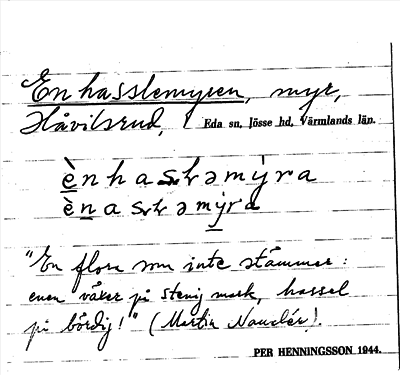 En hasslemyren, myr,
Håvilsrud, Eda sn, Jösse hd, Värmlands län.
"En flora som inte stämmer:
enen växer på stenig mark, hassel
på bördig!" (Martin Nauclér).
PER HENNINGSSON 1944.